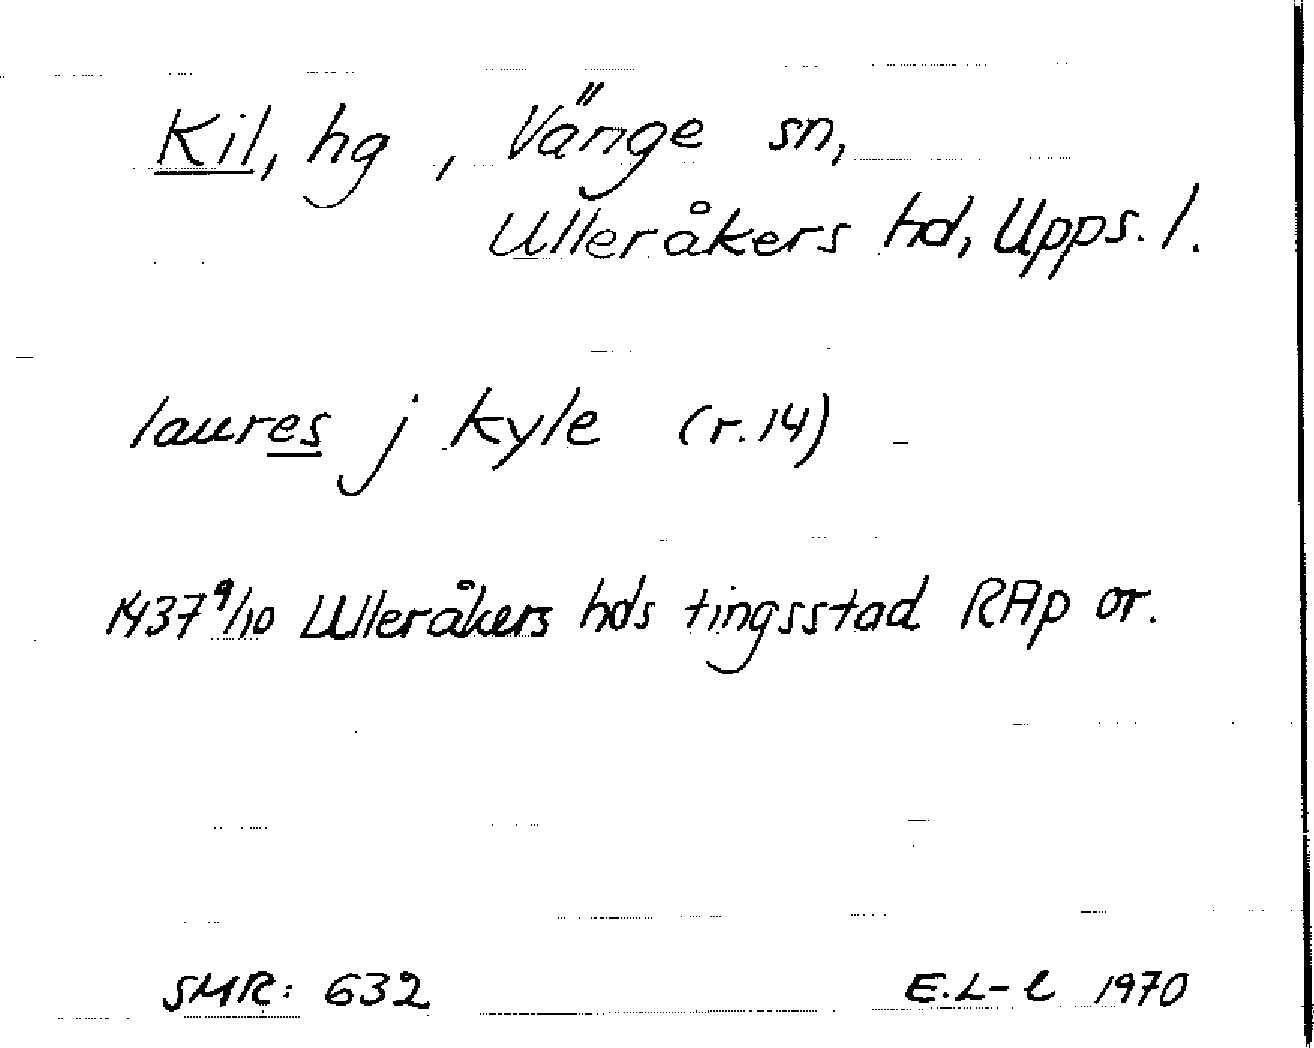 Kil, hg, Vänge sn,
Ulleråkers hd, Upps. l.
laures j kyle (r. 14)
1437 9/10 Ulleråkers hds tingsstad RAp or.
SMR: 632 E.L-l 1970